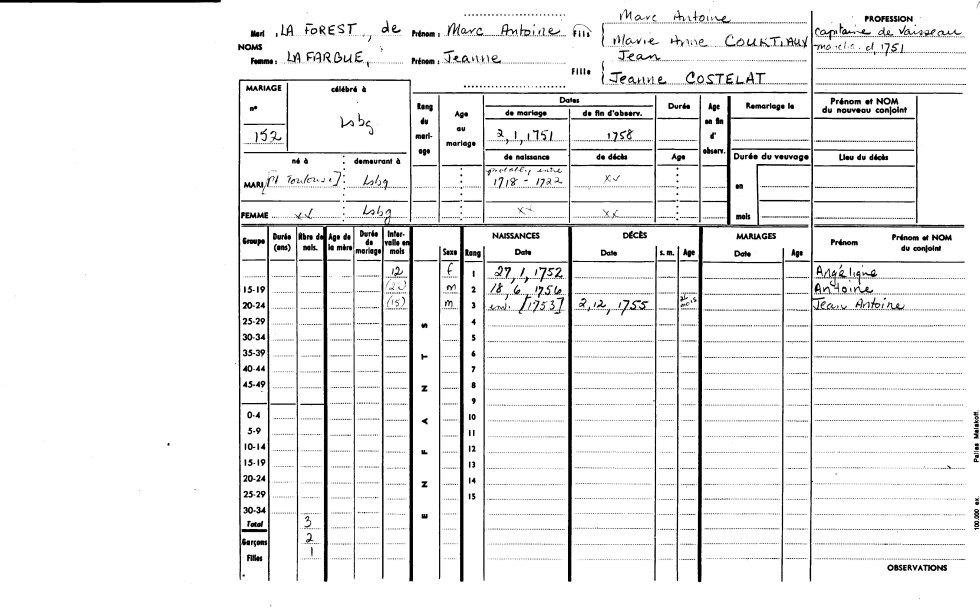 Marc Antoine
PROFESSION
Mari , LA FOREST, de Prénom : Marc Antoine Fils
Marie Anne COURTIAUX
capitaine de vaisseau
d, 1751
NOMS
Femme : LA FARGUE, Prénom : Jeanne
Jean
Fille
Jeanne COSTELAT
MARIAGE célébré à
n° 152
Lsbg
Rang du mari- age
Age au mariage
Dates
de mariage de fin d'observ.
2, 1, 1751 1758
Durée
Age en fin d' observ.
Remariage le
Prénom et NOM du nouveau conjoint
né à demeurant à
de naissance de décès Age
Durée du veuvage
Lieu du décès
MARI Lsbg
entre
1718 - 1722
xx
en
FEMME xx Lsbg xx xx
mois
Groupe
Durée (ans)
Nbre de nais.
Age de la mère
Durée de mariage
Inter- valle en mois
ENFANTS
Sexe
Rang
NAISSANCES
Date
DÉCÈS
Date
s. m.
Age
MARIAGES
Date
Age
Prénom
Prénom et NOM du conjoint
12 f 1 27, 1, 1752 Angélique
15-19 m 2 18, 6, 1756 Antoine
20-24 (15) m 3 [1753] 2, 12, 1755 mois Jean Antoine
25-29 4
30-34 5
35-39 6
40-44 7
45-49 8
9
0-4 10
5-9 11
10-14 12
15-19 13
20-24 14
25-29 15
30-34
Total 3
Garçons 2
Filles 1
OBSERVATIONS
100.000 ex. Pallas Malakoff.